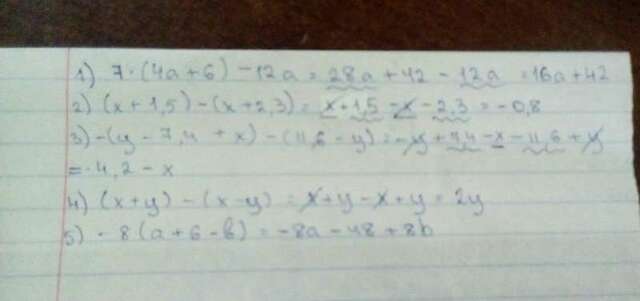 1) 7·(4a+6)-12a=28a+42-12a=16a+42
2) (x+1,5)-(x+2,3)=x+1,5-x-2,3=-0,8
3) -(y-7,4+x)-(11,6-y)=-y+7,4-x-11,6+y
=-4,2-x
4) (x+y)-(x-y)=x+y-x+y=2y
5) -8(a+6-b)=-8a-48+8b